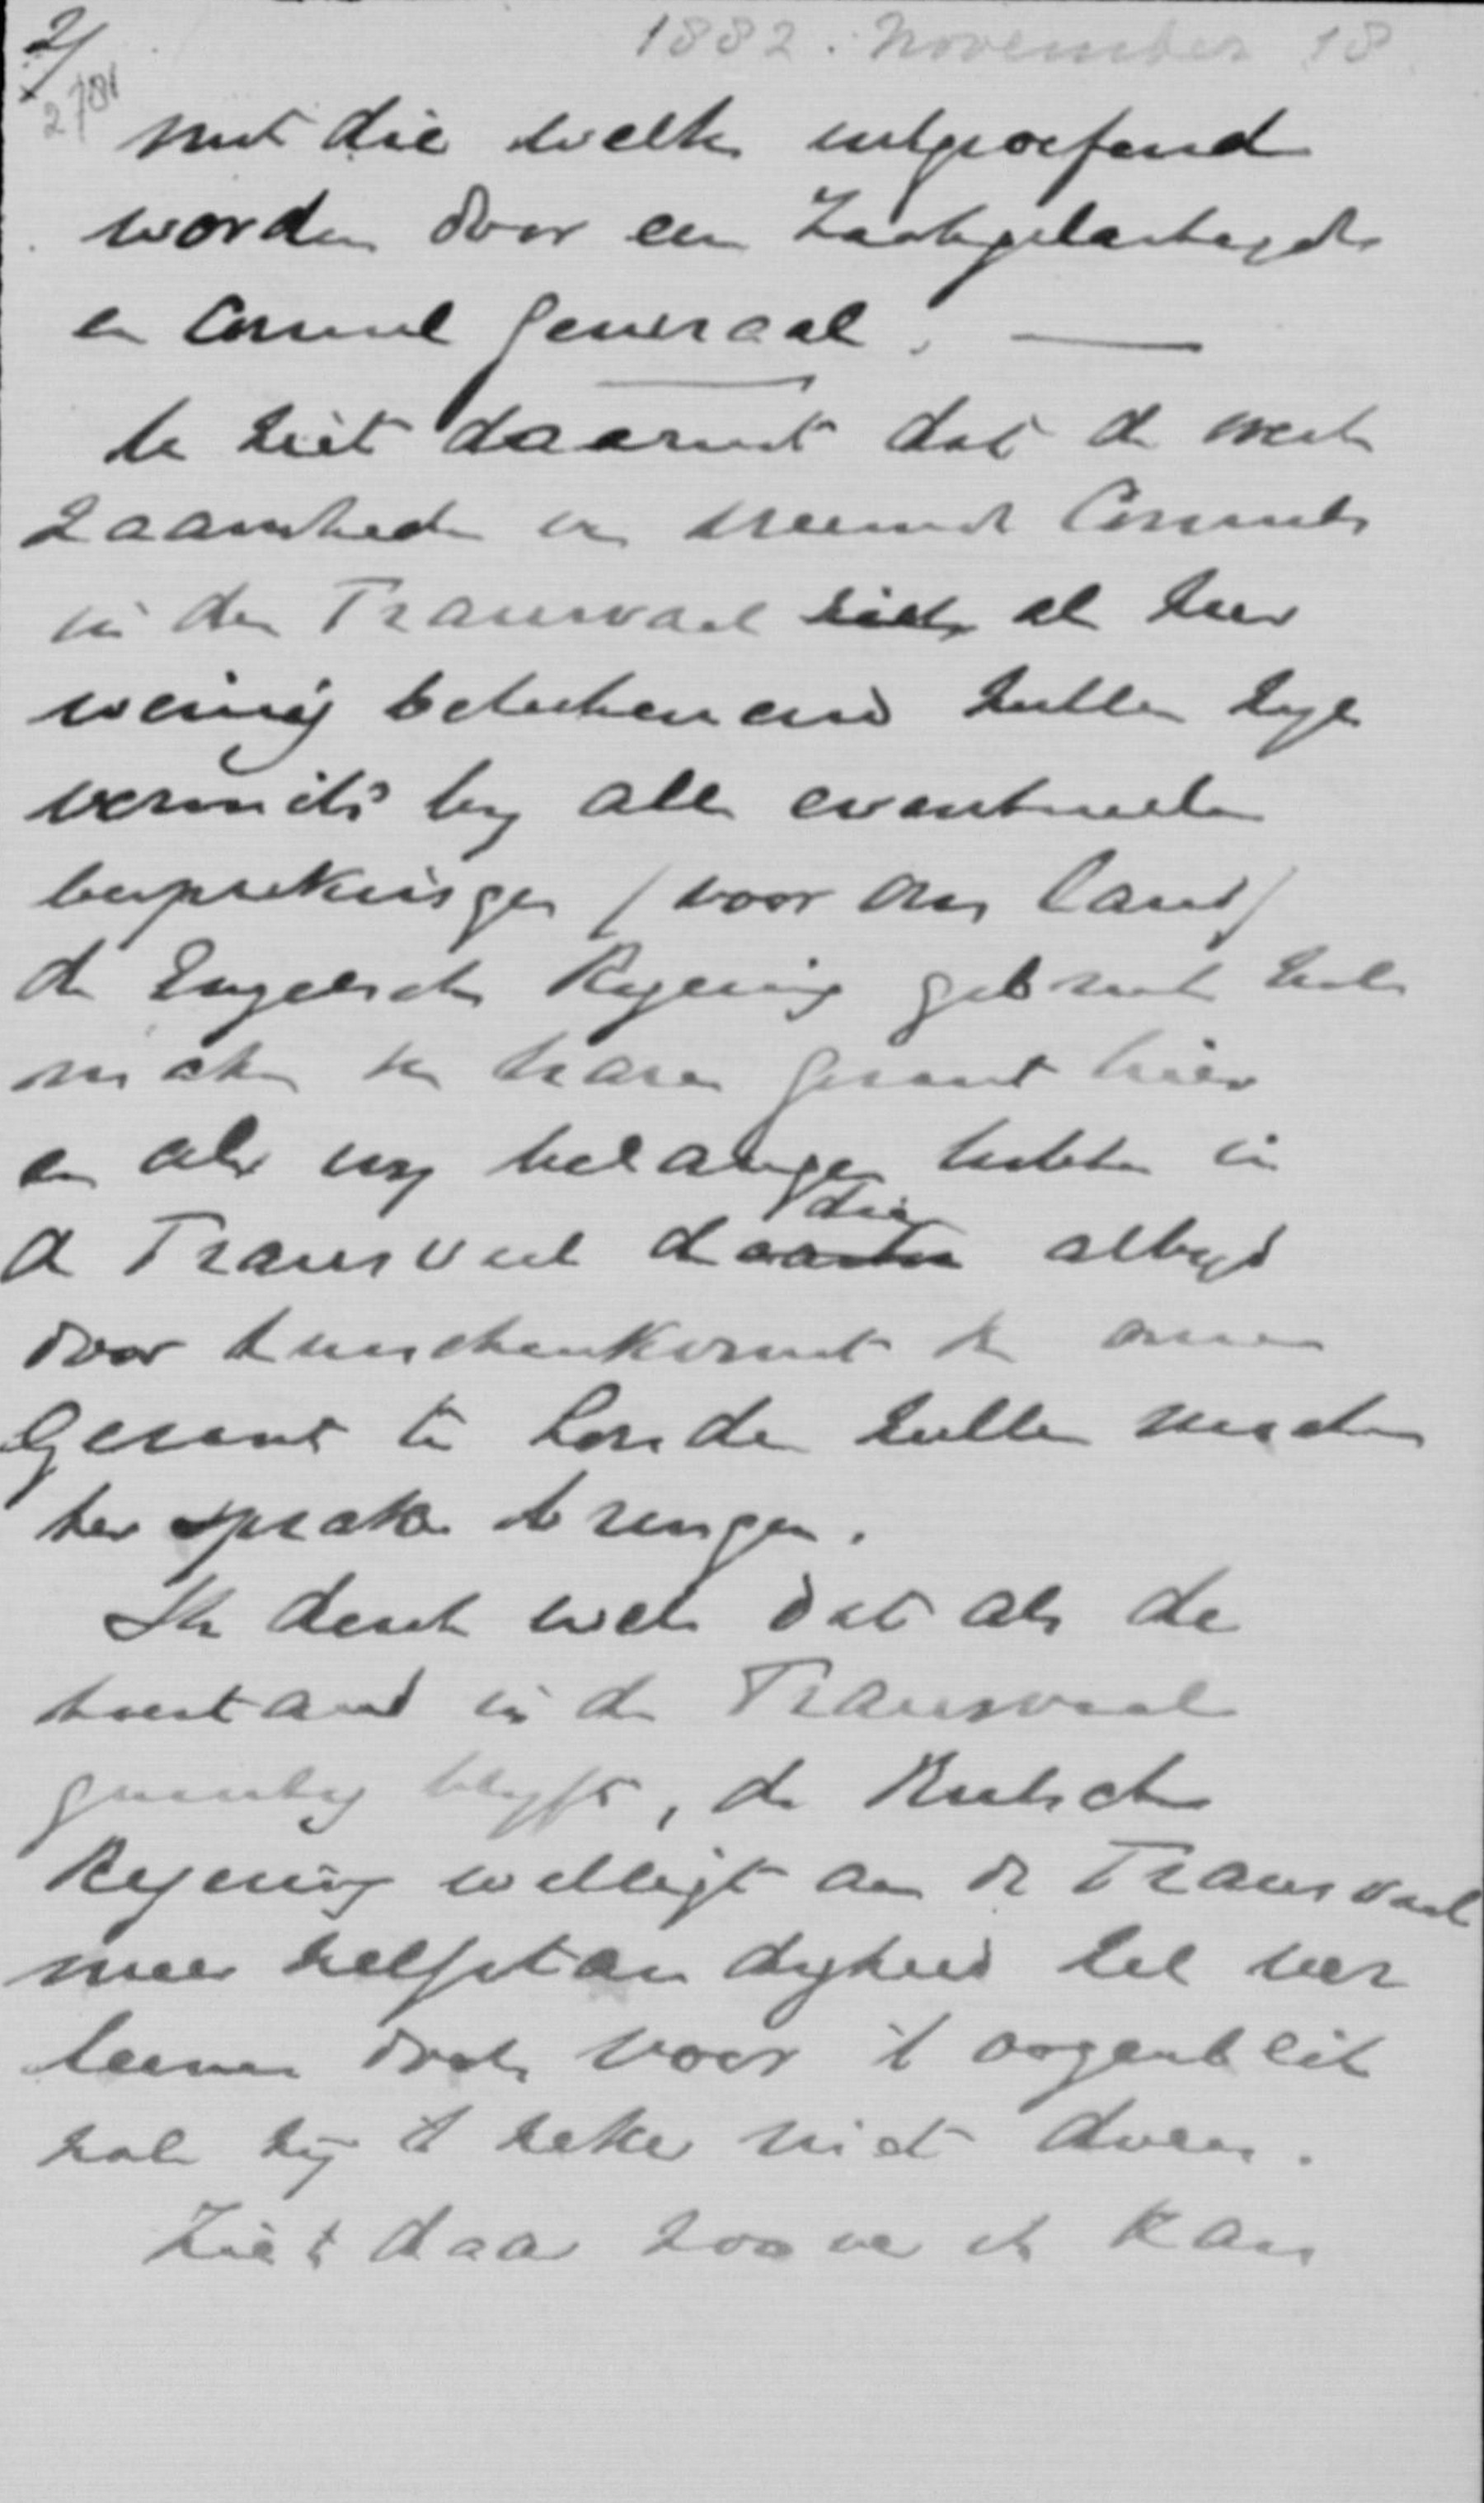 2/
1882. November 18
2781
met die welke uitgeoefend
worden door een Zaakgelastigde
en Consul Generaal. —
U ziet daaruit dat de werk
zaamheden van vreemde Consuls
in den Transvaal zich al zeer
weinig beteekenend zullen zyn
vermits by alle eventueele
besprekingen / voor ons land /
de Engelsche Regering gebruik zal
maken van haren gezant hier
en als wy belangen hebben in
de Transvaal daarin die altyd
door tusschenkomst van onzen
Gezant te Londen zullen moeten
ter sprake brengen.
Ik denk wel dat als de
toestand in de Transvaal
gunstig blyft, de Britsche
Regering welligt aan de Transvaal
meer zelfstandigheid zal ver
leenen doch voor 't oogenblik
zal zij 't zeker niet doen.
Ziet daar zoover ik kan